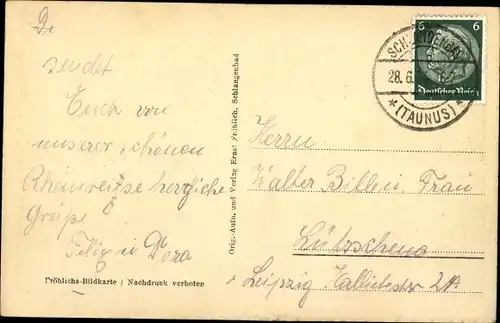 sendet
Euch von
unserer schönen
Rheinreise herzliche
Grüße
Felix u Dora
Fröhlichs-Bildkarte / Nachdruck verboten
Orig.-Aufn. und Verlag Ernst Fröhlich, Schlangenbad
6 6
Deutsches Reich
28.6.
(TAUNUS)
Herrn
Walter Billen, Frau
Lützschena
Leipzig, Hallischestr 2A